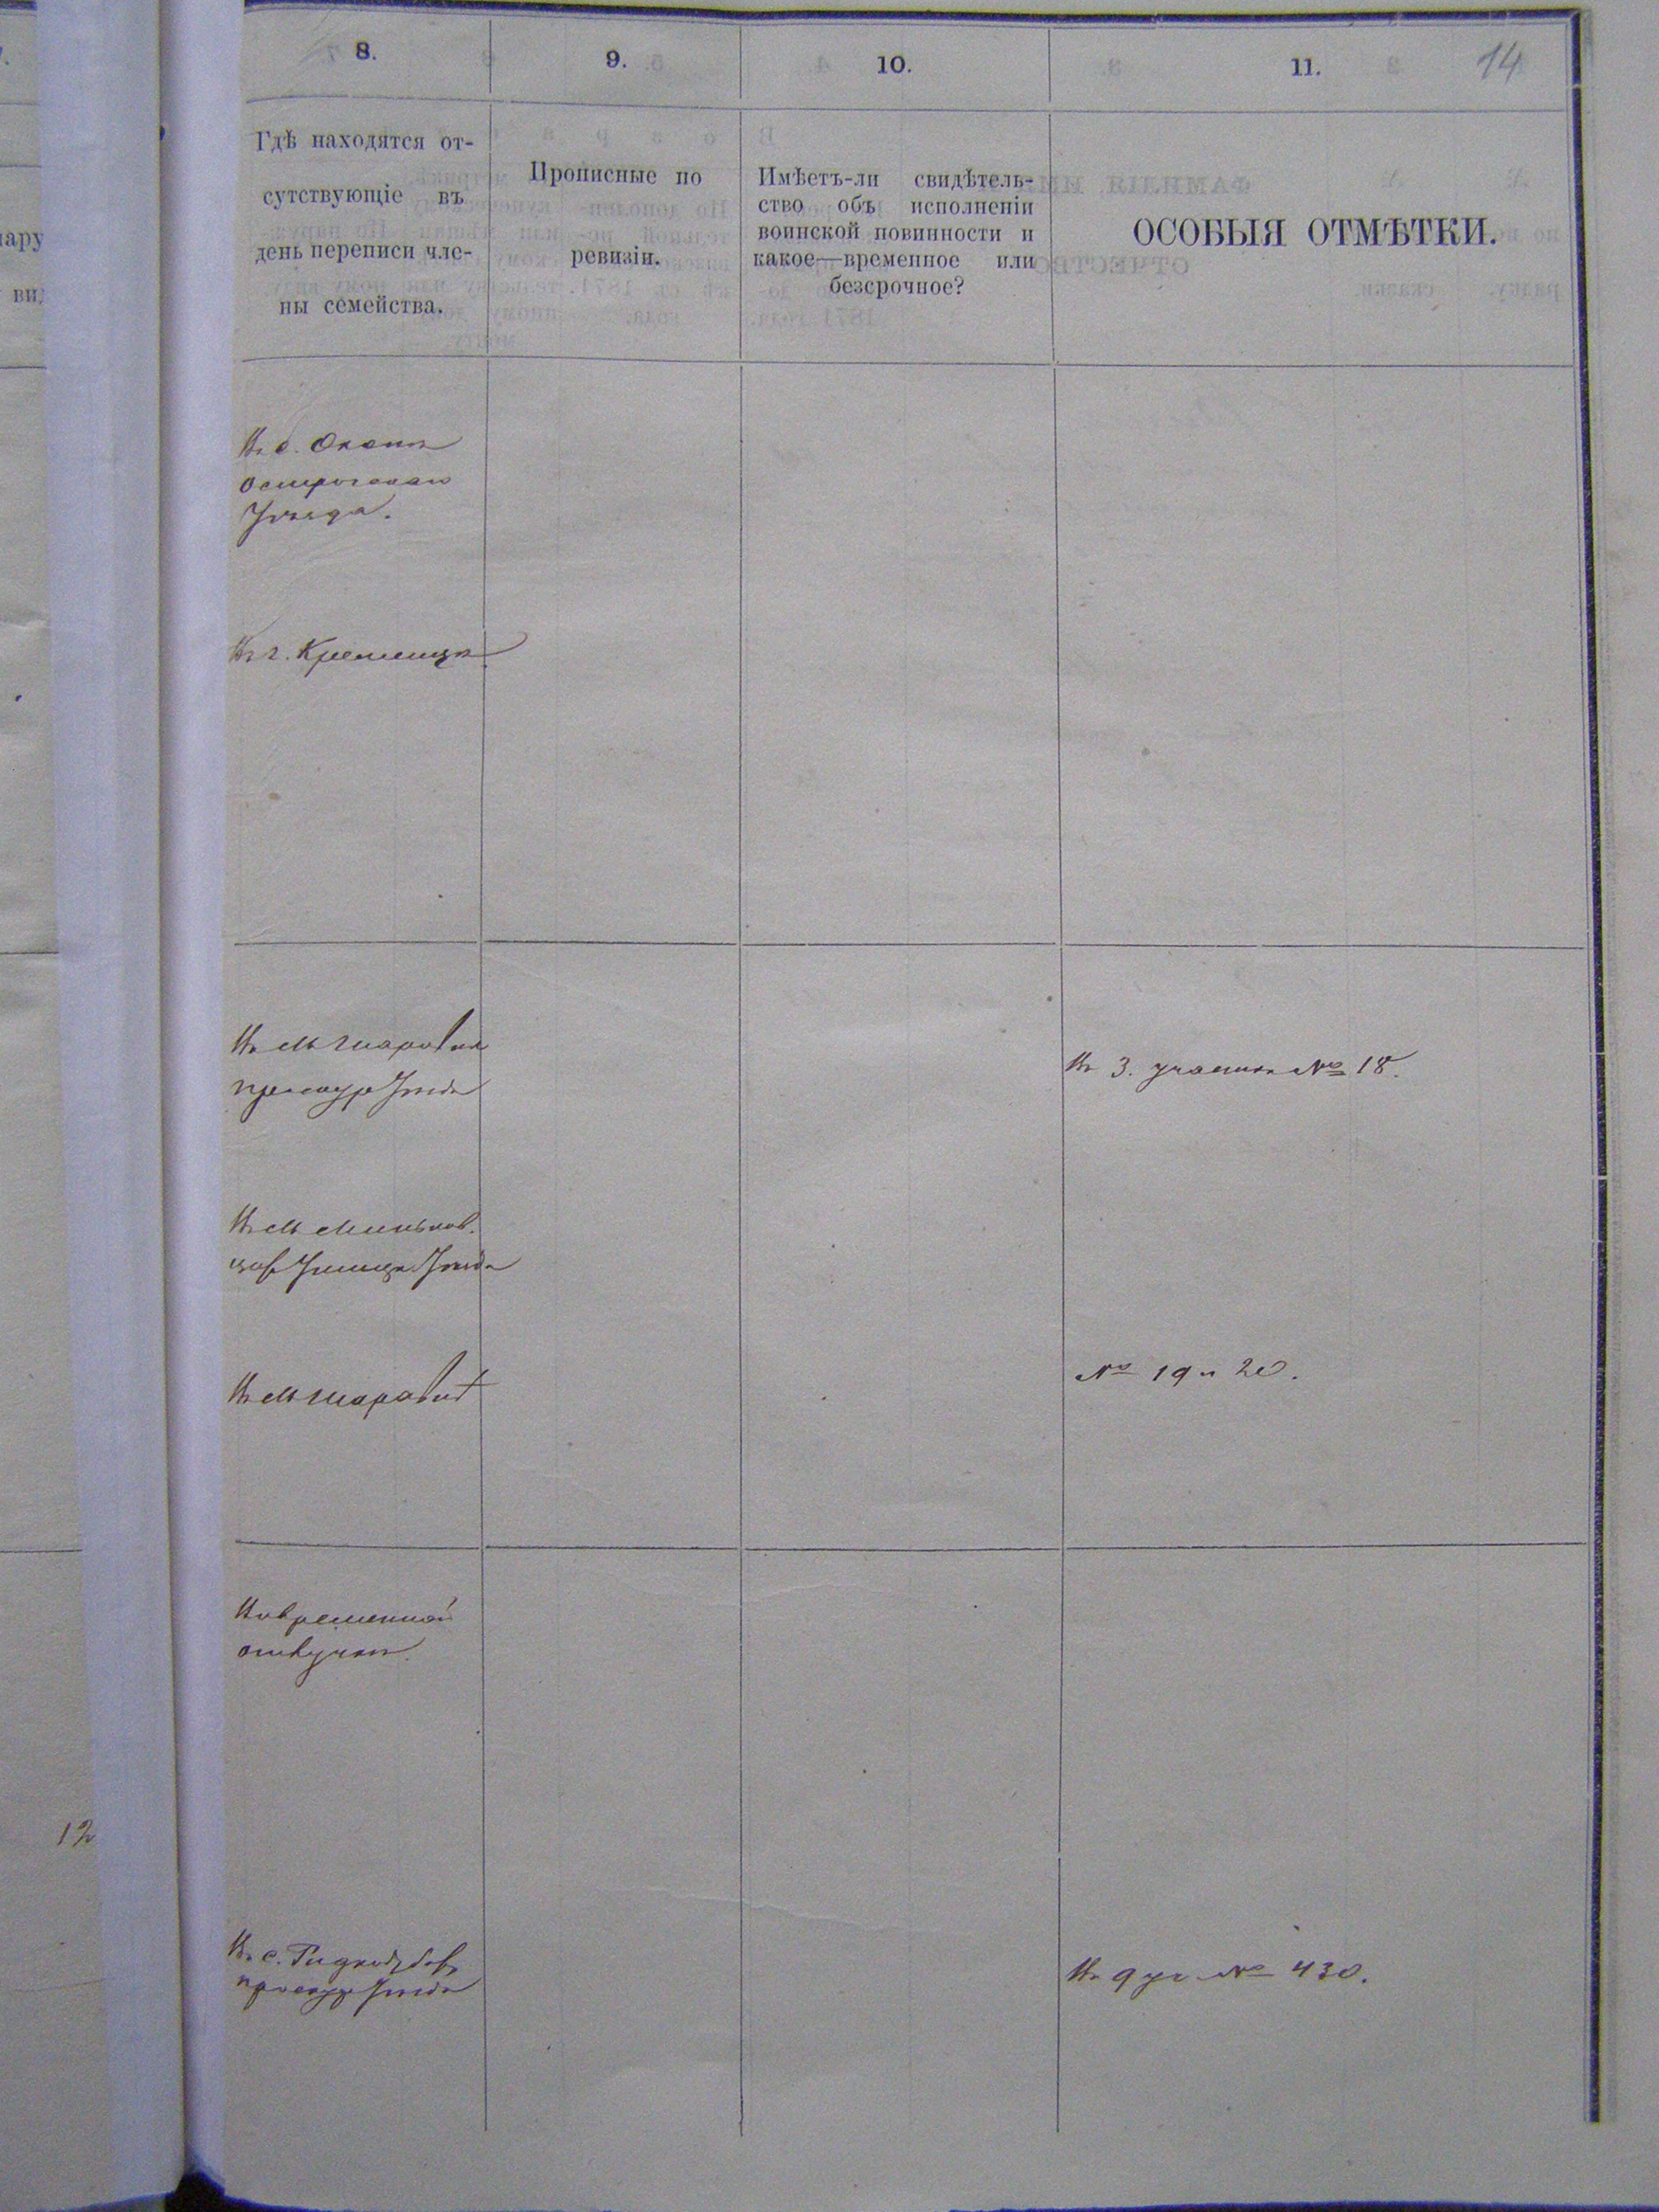 8.
9.
10.
11.
14
Гдѣ находятся от-
сутствующіе въ
день переписи чле-
ны семейства.
Прописные по
ревизіи.
Имѣетъ-ли свидѣтель-
ство объ исполненіи
воинской повинности и
какое—временное или
безсрочное?
ОСОБЫЯ ОТМѢТКИ.
Въ с.
острогскаго
Уѣзда.
Въ г. Кременцѣ
Въ м.
Уѣзда
Въ 3. участкѣ № 18.
Въ м. Миньков.
Уѣзда
Въ м.
№ 19 и 20.
Въ временной
отлучкѣ.
Въ с.
Уѣзда
Въ 9 уч № 430.
12